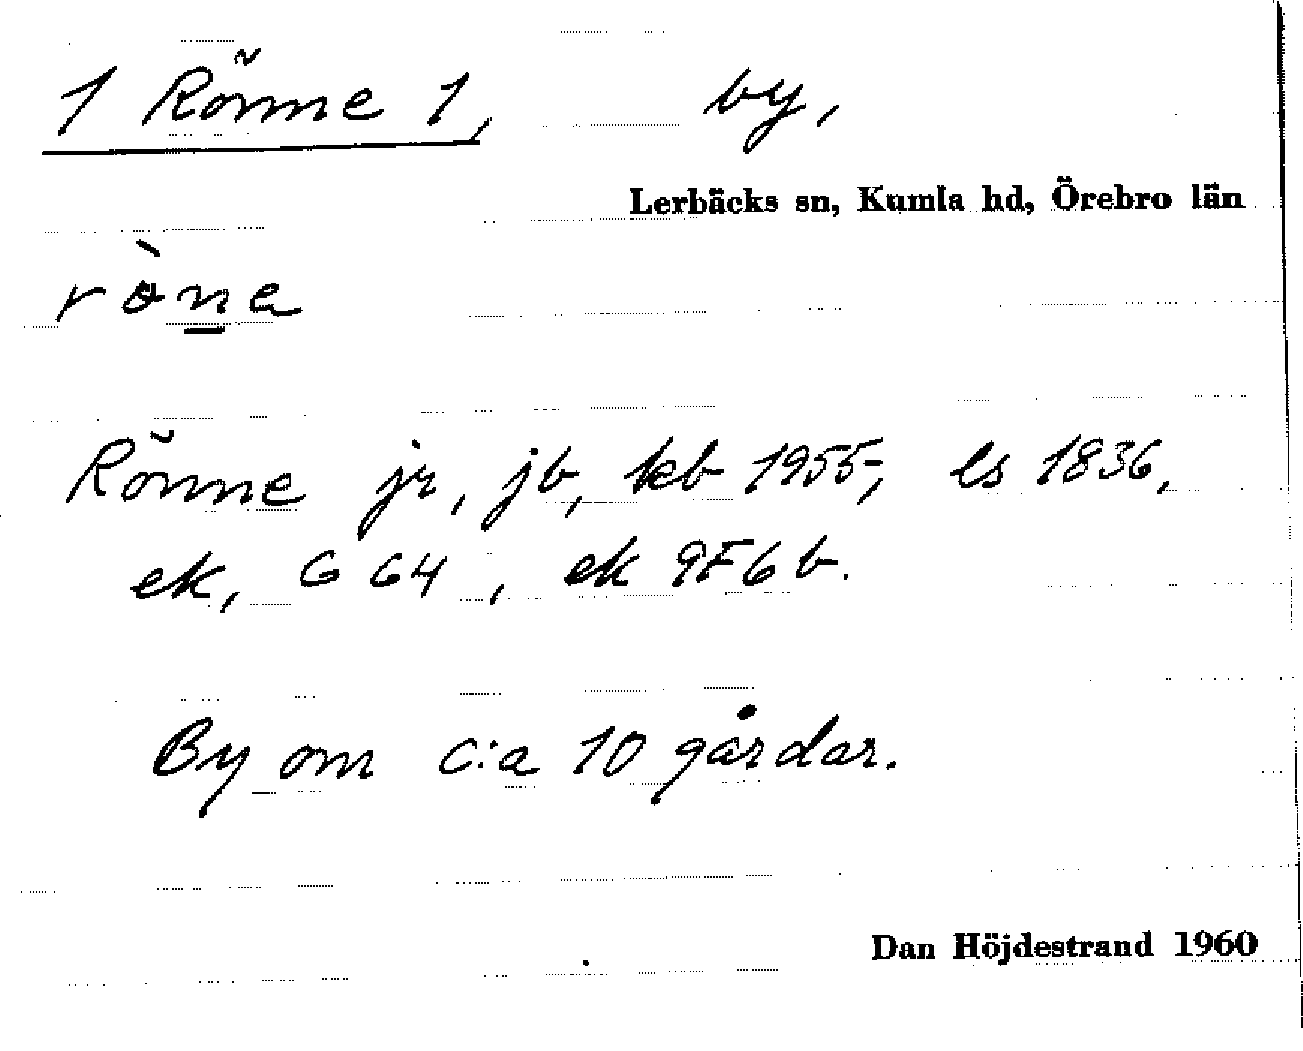 1 Rönne 1, by,
Lerbäcks sn, Kumla hd, Örebro län
ròne
Rönne jr, jb, kb 1955; ls 1836,
ek, G G4, ek 9F6b.
By om c:a 10 gårdar.
Dan Höjdestrand 1960